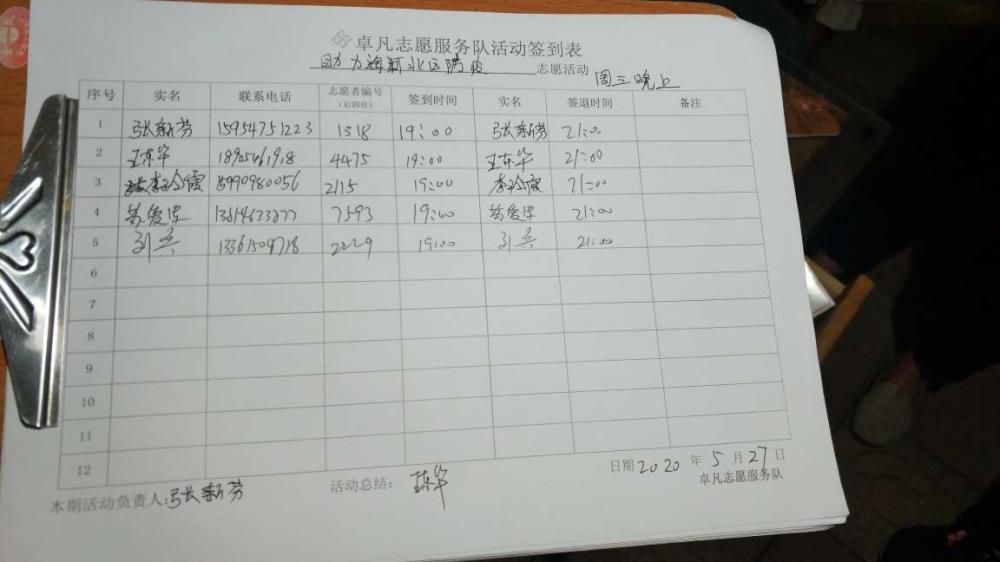 卓凡志愿服务队活动签到表
助力海新北区防疫 志愿活动 周三晚上
序号 实名 联系电话 志愿者编号（后四位） 签到时间 实名 签退时间 备注
1 张新芳 15954751223 1318 19:00 张新芳 21:00
2 王东华 4475 19:00 王东华 21:00
3 2115 19:00 21:00
4 7593 19:00 21:00
5 2229 19:00 21:00
6
7
8
9
10
11
12
本期活动负责人:张新芳 活动总结： 王东华 日期2020年5月27日
卓凡志愿服务队